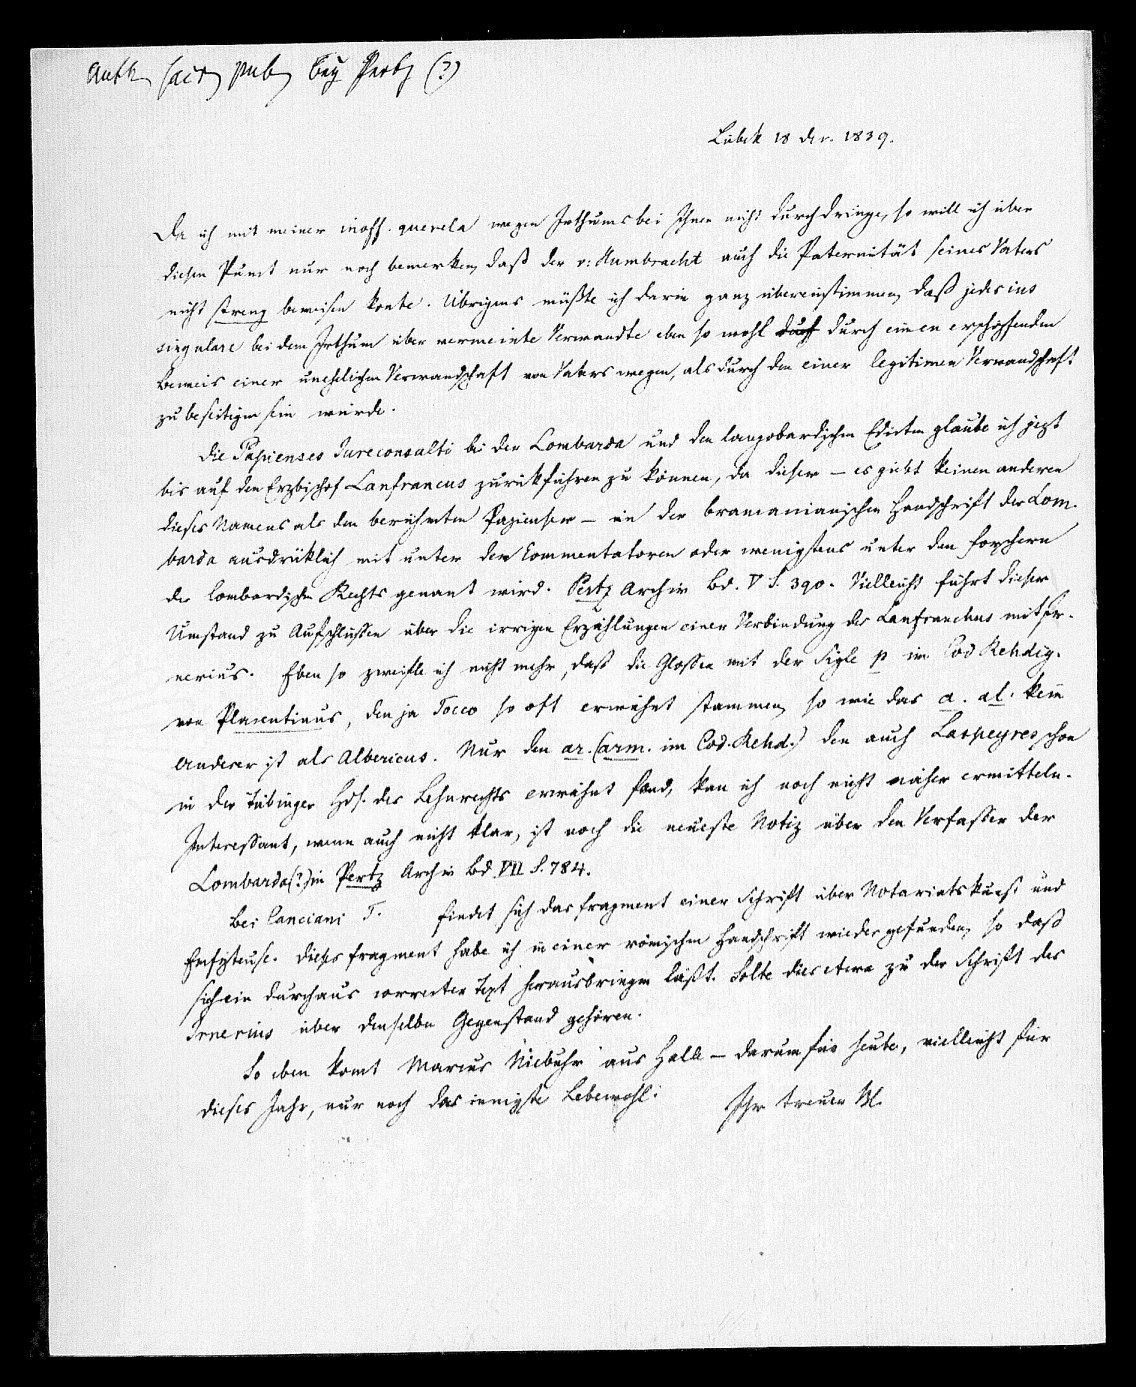 Auth. sacr. pub. bey Pertz (?)
Lübek 18 Dec. 1839.
Da ich mit meiner inoff. querela wegen Irthums bei Ihnen nicht durchdringe, so will ich über
diesen Punct nur noch bemerken, daß der v. Humbracht auch die Paternität seines Vaters
nicht streng beweisen konte. Übrigens müßte ich darin ganz übereinstimmen, daß jedes ius
singulare bei dem Irthum über vermeinte Verwandte eben so wohl durch einen erschöpfenden
Beweis einer unehelichen Verwandschaft von Vaters wegen, als durch den einer legitimen Verwandschaft
zu beseitigen sein würde.
Die Papienses Iureconsulti bei der Lombarda und den langobardischen Edicten glaube ich jezt
bis auf den Erzbischof Lanfrancus zurükführen zu können, da dieser – es giebt keinen anderen
dieses Namens als den berühmten Papienser – in der brancanianischen Handschrift der Lom-
barda ausdrüklich mit unter den Commentatoren oder wenigstens unter den Forschern
des lombardischen Rechts genant wird. Pertz Archiv Bd. V S. 390. Vielleicht führt dieser
Umstand zu Aufschlüssen über die irrigen Erzählungen einer Verbindung des Lanfranchus mit Ir-
nerius. Eben so zweifle ich nicht mehr, daß die Glossen mit der Sigle p im Cod Rehdig.
von Placentinus, den ja Tocco so oft erwähnt stammen, so wie das a. al. kein
anderer ist als Albericus. Nur den ar. (arm. im Cod. Rehd.) den auch Laspeyres schon
in der Tübinger Hds. des Lehnrechts erwähnt fand, kan ich noch nicht näher ermitteln.
Interessant, wenn auch nicht klar, ist noch die neueste Notiz über den Verfasser der
Lombarda (?) in Pertz Archiv Bd. VII S. 784.
Bei Canciani T. findet sich das Fragment einer Schrift über Notariatskunst und
Emfyteuse. Dieses Fragment habe ich in einer römischen Handschrift wieder gefunden, so daß
sich ein durchaus correcter Text herausbringen läßt. Solte dies etwa zu der Schrift des
Irnerius über denselben Gegenstand gehören.
So eben komt Marcus Niebuhr aus Halle – darum für heute, vielleicht für
dieses Jahr, nur noch das innigste Lebewohl!
Ihr treuer Bl.